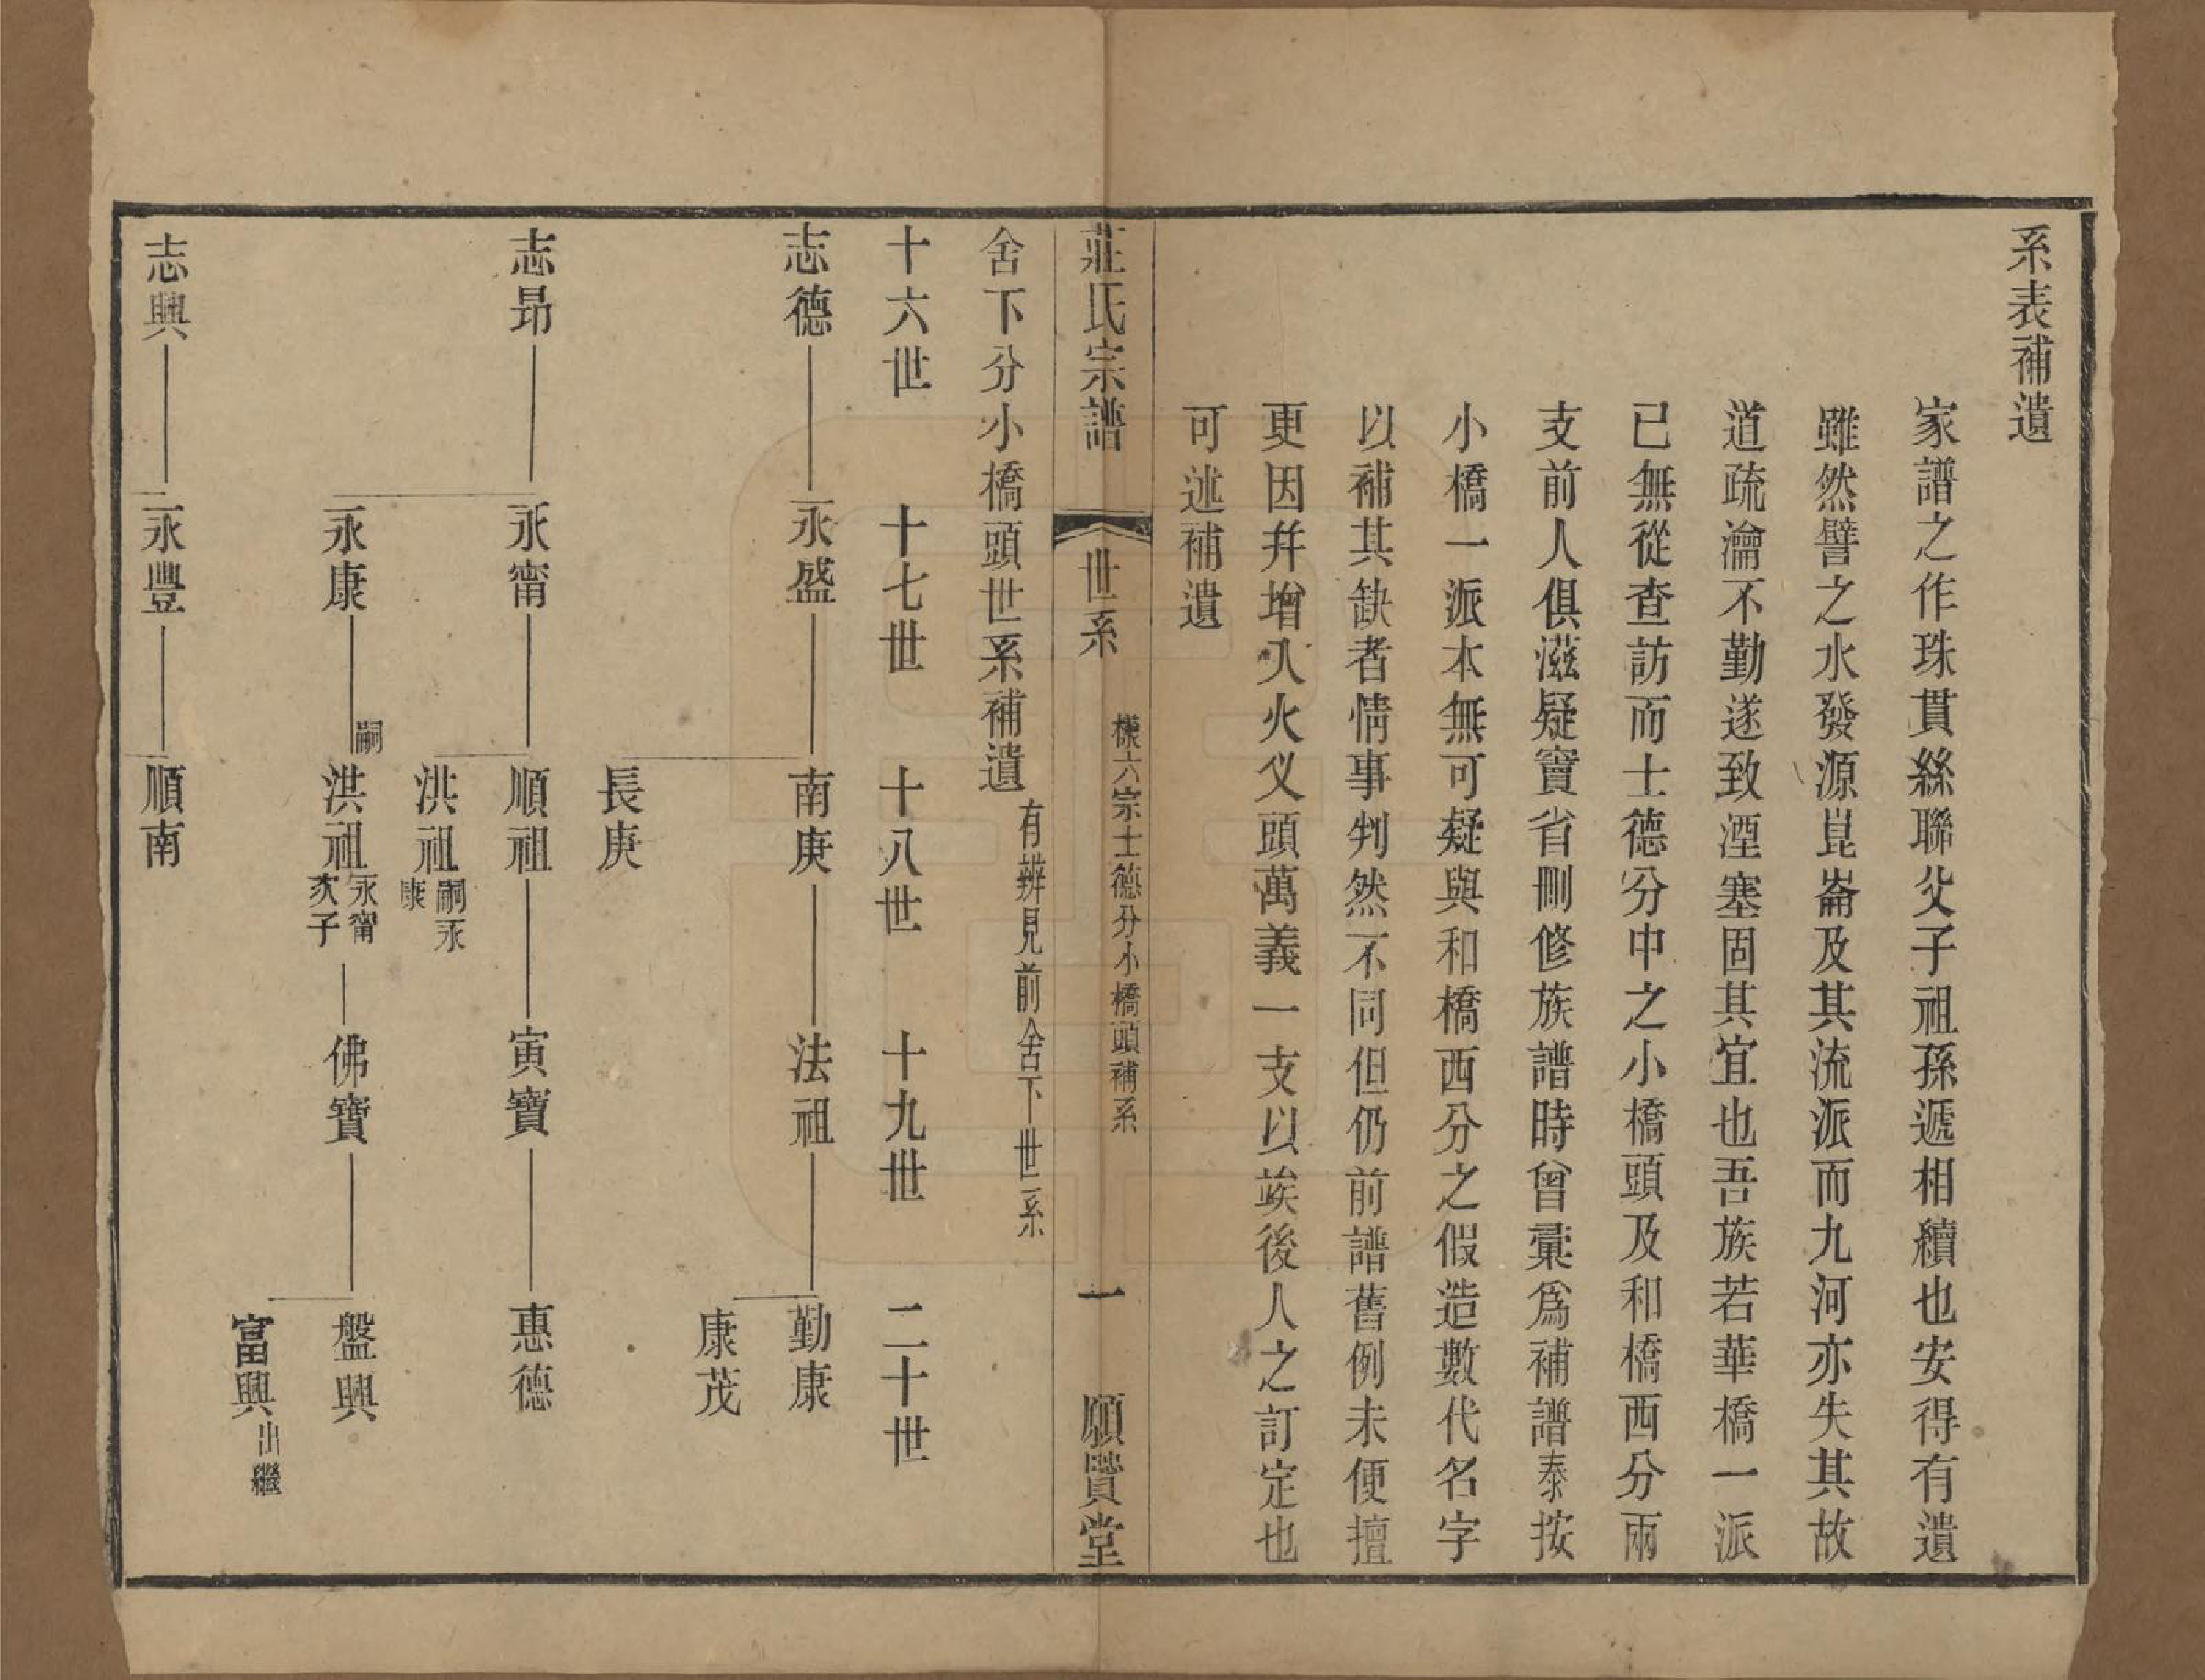 系表補遺
家譜之作珠貫絲聯父子祖孫遞相續也安得有遺
雖然譬之水發源崑崙及其流派而九河亦失其故
道疏瀹不勤遂致湮塞固其宜也吾族若華橋一派
已無從查訪而士德分中之小橋頭及和橋西分兩
支前人俱滋疑竇省刪修族譜時曾彙爲補譜泰按
小橋一派本無可疑與和橋西分之假造數代名字
以補其缺者情事判然不同但仍前譜舊例未便擅
更因并增入火义頭萬義一支以竢後人之訂定也
可述補遺
莊氏宗譜
世系
樣六宗士德分小橋頭補系
一
願賢堂
舍下分小橋頭世系補遺
有辨見前舍下世系
十六世 十七世 十八世 十九世 二十世
志德 永盛 南庚 法祖 勤康
康茂
長庚
志昂 永甯 順祖 寅寶 惠德
洪祖 嗣永
康
永康 嗣 洪祖 永甯
次子 佛寶 盤興
富興 出繼
志興 永豐 順南